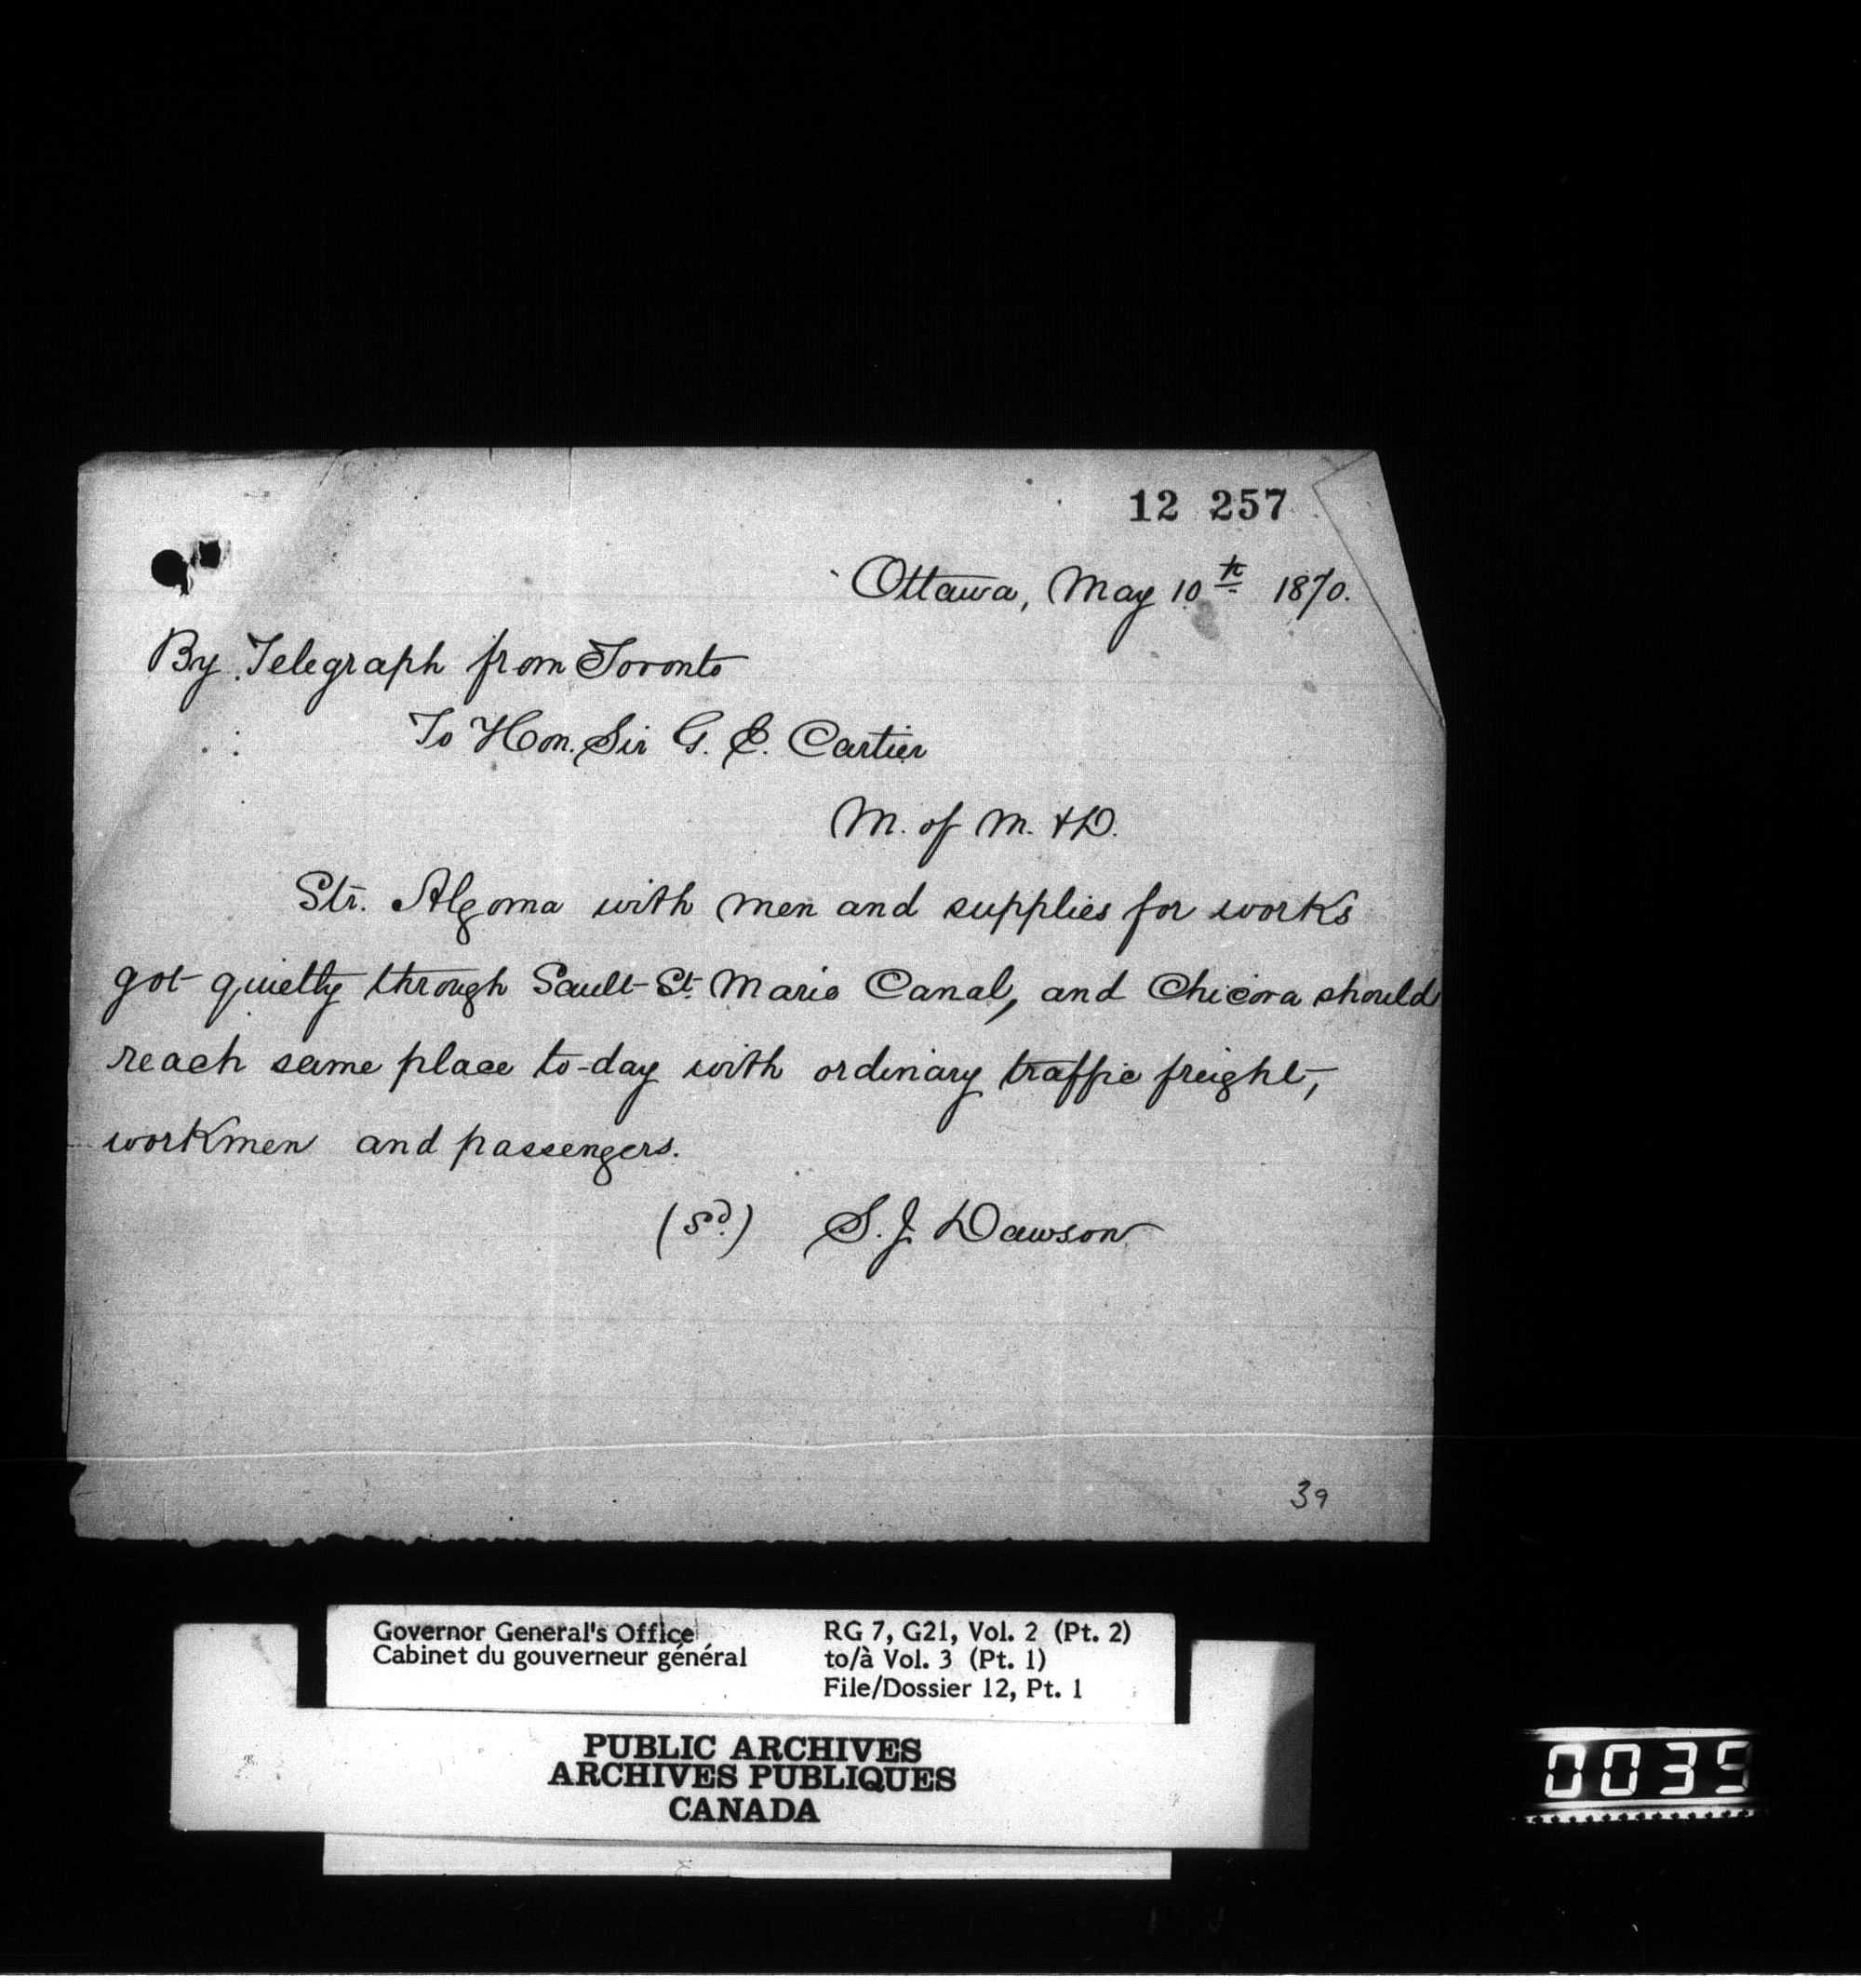 12 257
Ottawa, May 10th 1870.
By Telegraph from Toronto
To Hon. Sir G. E. Cartier
M. of M. & D.
Str. Algoma with men and supplies for works
got quietly through Sault St. Marie Canal, and Chicora should
reach same place to-day with ordinary traffic freight,
workmen and passengers.
(Sd.) S. J. Dawson
39
Governor General's Office
Cabinet du gouverneur général
RG 7, G21, Vol. 2 (Pt. 2)
to/à Vol. 3 (Pt. 1)
File/Dossier 12, Pt. 1
PUBLIC ARCHIVES
ARCHIVES PUBLIQUES
CANADA
0035